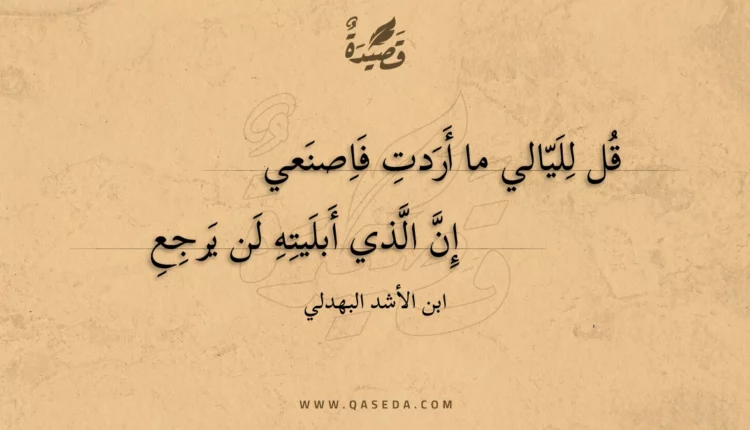 قَصِيْدَةٌ
قُل لِلَيّالي ما أَرَدتِ فَاِصنَعي
إِنَّ الَّذي أَبلَيتِهِ لَن يَرجِعِ
ابن الأشد البهدلي
WWW.QASEDA.COM